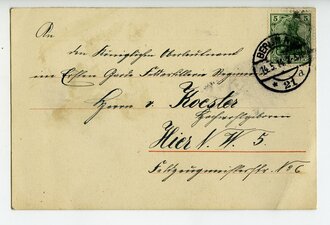 An
den Königlichen Oberleutnant
im Ersten Garde Feldartillerie Regiment
Herrn v. Koester
Hochwohlgeboren
Hier N.W. 5
Feldzeugmeisterstr. No 6
5
BERLIN
* 21 a